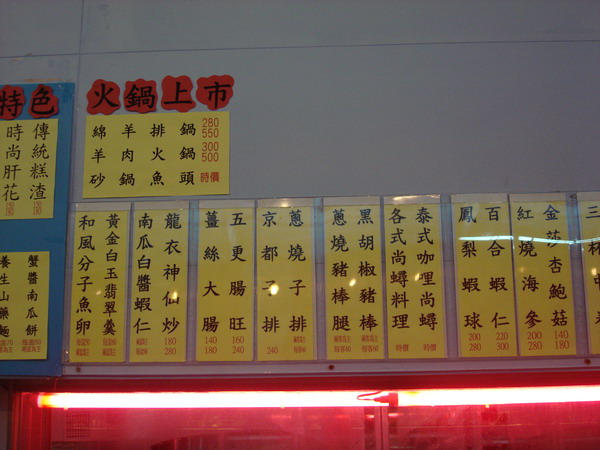 特色
傳統糕渣
時尚肝花
火鍋上市
綿羊排鍋 280 550
羊肉火鍋 300 500
砂鍋魚頭 時價
三杯中
金莎杏鮑菇 140 180
紅燒海參 200 280
百合蝦仁 220 300
鳳梨蝦球 200 280
泰式咖哩尚蟳 時價
各式尚蟳料理 時價
黑胡椒豬棒 每客60
蔥燒豬棒腿 每客40
蔥燒子排
京都子排 240
五更腸旺 160 240
薑絲大腸 140 180
龍衣神仙炒 180 280
南瓜白醬蝦仁
黃金白玉翡翠羹
和風分子魚卵
蟹醬南瓜餅
養生山藥麵